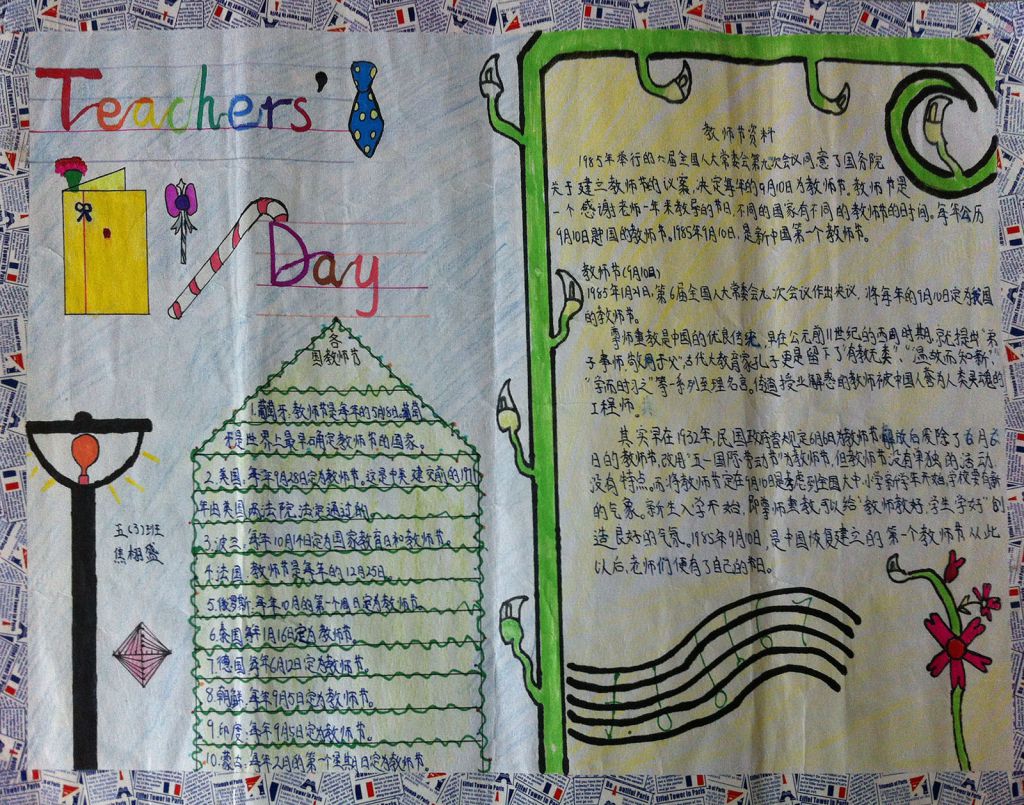 Teachers'
Day
各
国教师节
1.葡萄牙,教师节是每年的5月18日,葡萄
牙是世界上最早确定教师节的国家。
2.美国,每年9月28日定为教师节。这是中美建交前的1971
年由美国两法院,法定通过的
3.波兰,每年10月14日定为国家教育日和教师节。
4.法国,教师节是每年的12月25日。
5.俄罗斯,每年10月的第一个周日定为教师节。
6.泰国每年1月16日定为教师节。
7.德国每年6月12日定为教师节。
8.朝鲜,每年9月5日定为教师节。
9.印度,每年9月5日定为教师节。
10.蒙古,每年2月的第一个星期日定为教师节。
五(3)班
焦栩盛
教师节资料
1985年举行的六届全国人大常委会第九次会议同意了国务院
关于建立教师节的议案,决定每年的9月10日为教师节。教师节是
一个感谢老师一年来教导的节日,不同的国家有不同的教师节的日时间。每年公历
9月10日是国的教师节。1985年9月10日,是新中国第一个教师节。
教师节(9月10日)
1985年1月21日,第6届全国人大常委会九次会议作出决议,将每年的9月10日定为我国
的教师节。
尊师重教是中国的优良传统,早在公元前11世纪的西周时期,就提出"弟
子事师,敬同于父",古代大教育家孔子更是留下了"有教无类""温故而知新",
"学而时习之"等一系列至理名言。传道授业解惑的教师被中国人誉为人类灵魂的
工程师。
其实早在1932年,民国政府曾规定6月6日为教师节,解放后废除了6月6
日的教师节,改用"五一国际劳动节"为教师节,但教师节没有单独的活动,
没有特点。而将教师节定在9月10日是考虑到全国大中小学新学年开始,学校要有新
的气象。新生入学开始,即尊师重教,可以给"教师教好,学生学好"创
造良好的气氛。1985年9月10日,是中国恢复建立的第一个教师节从此
以后,老师们便有了自己的节日。
Eiffel Tower in Paris